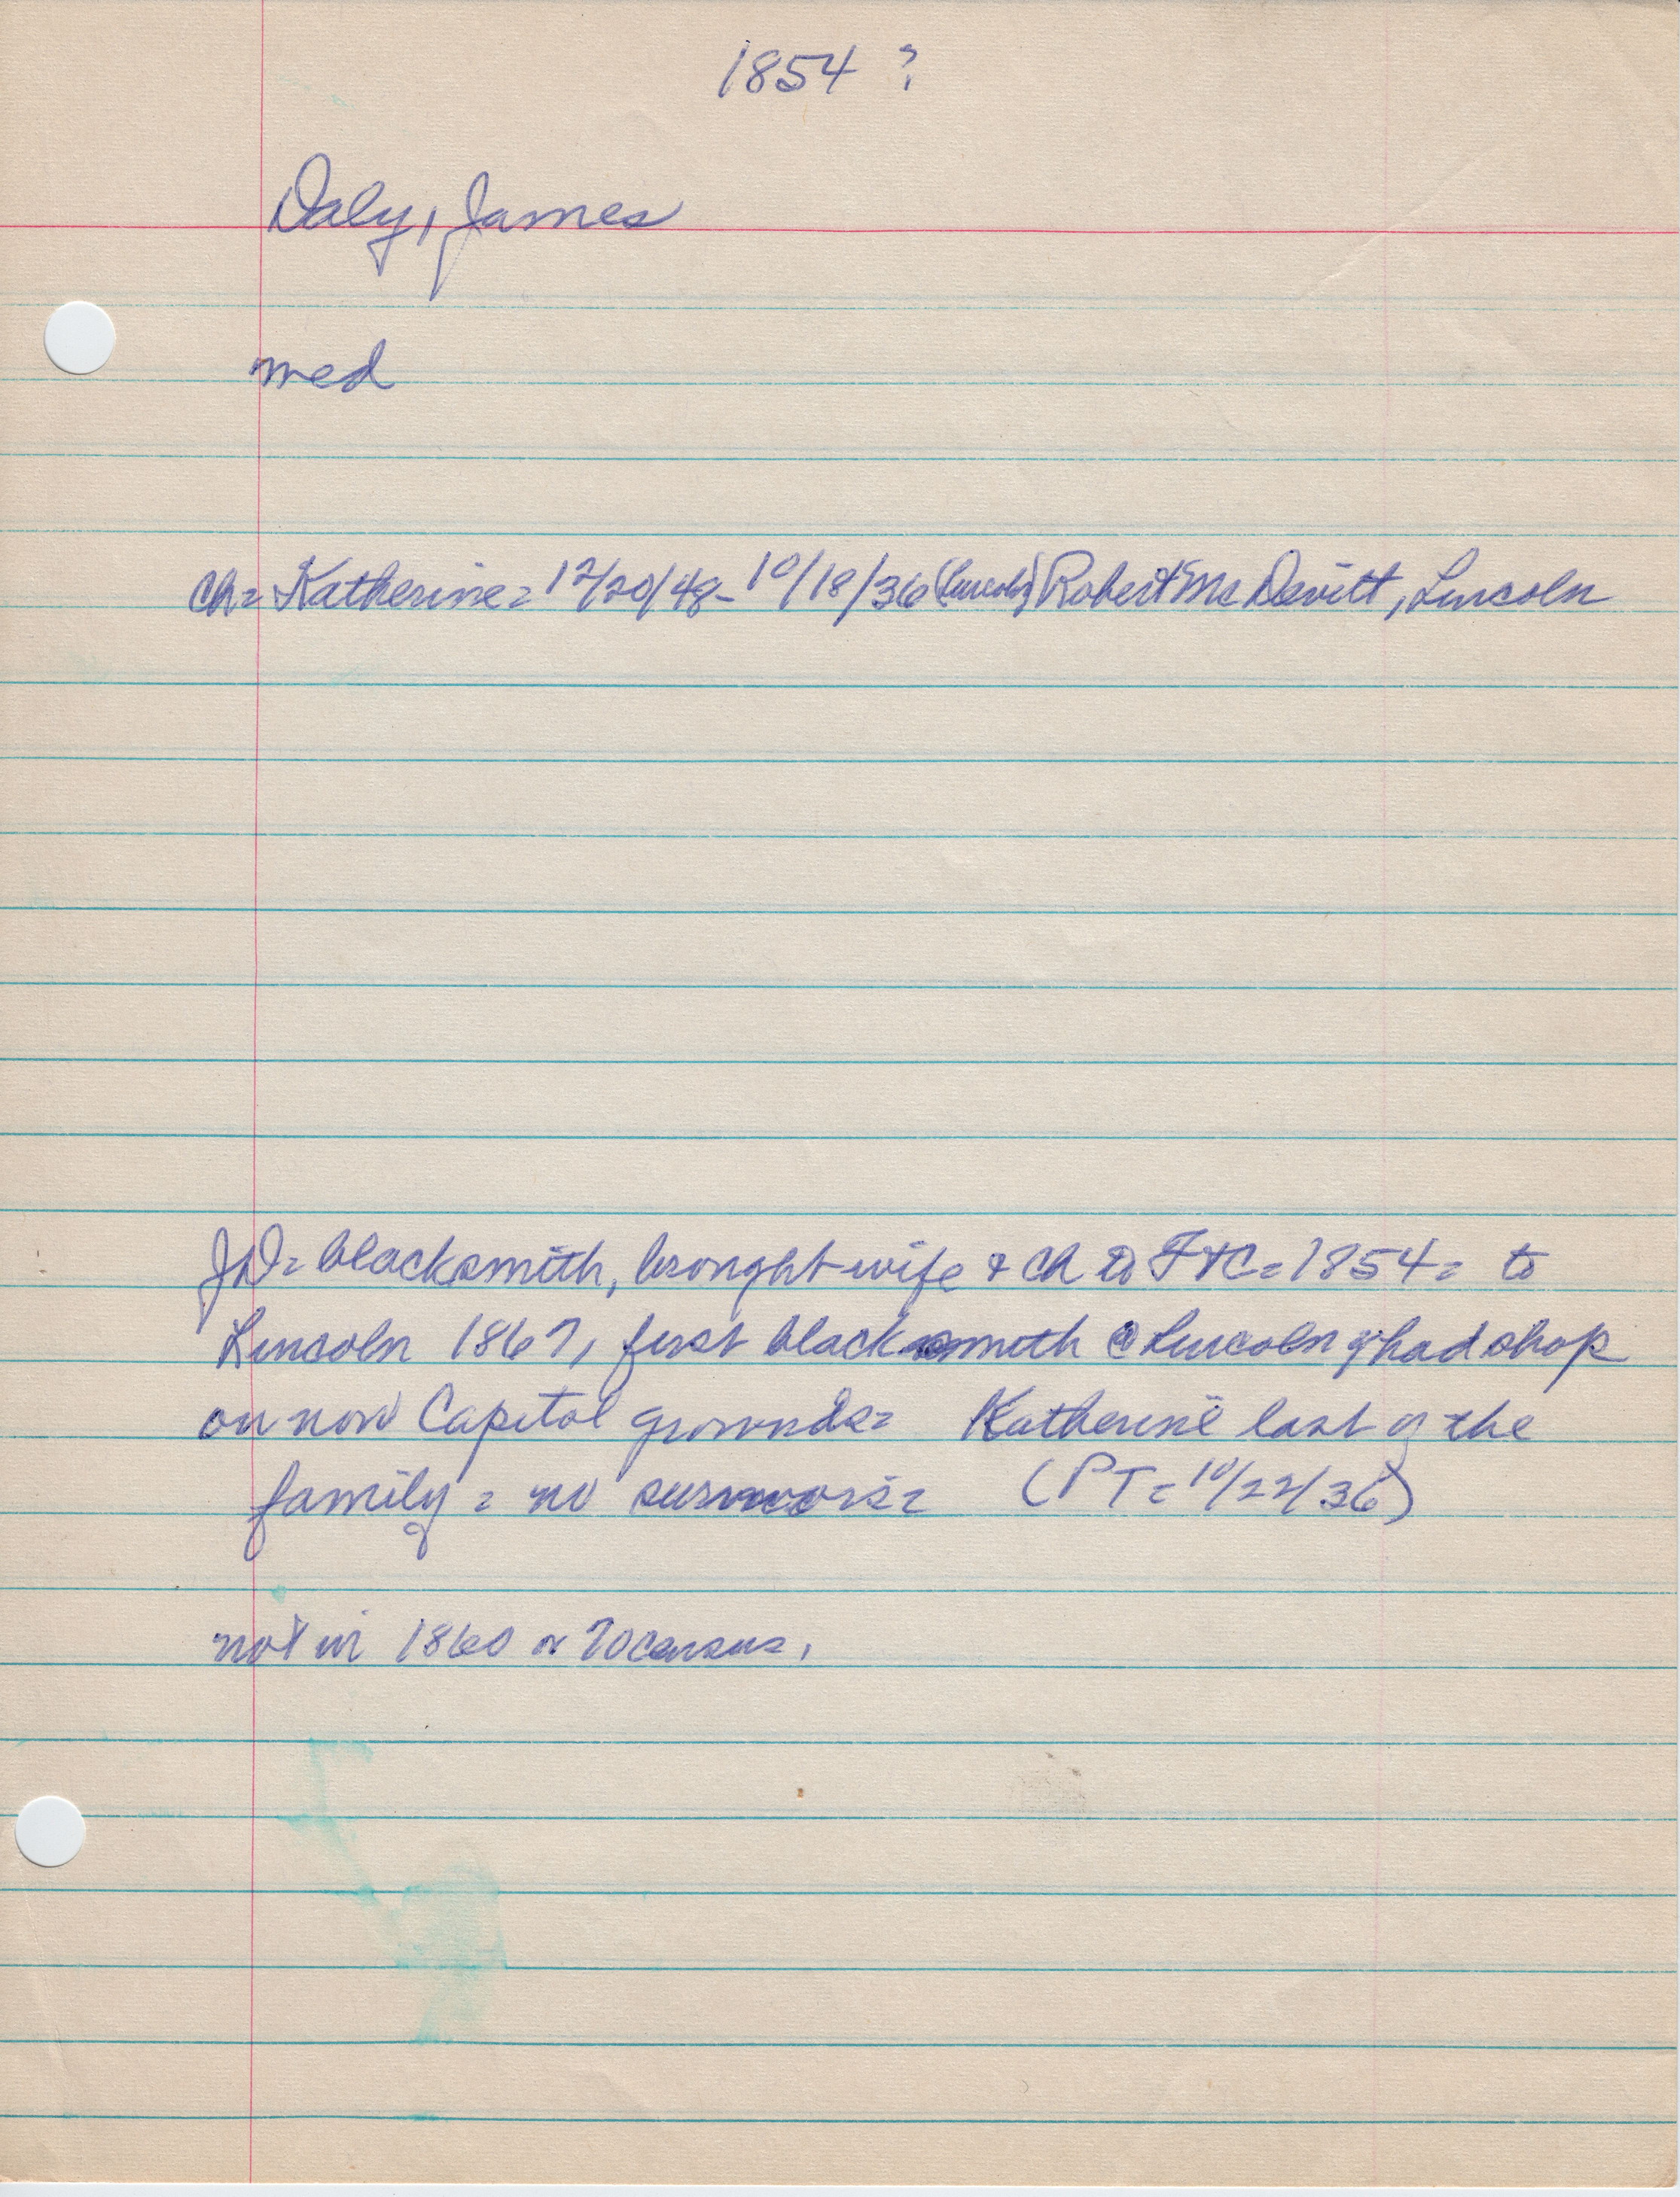 1854 ?
Daly, James
med
Ch= Katherine= 12/20/48- 10/18/36 (Lincoln) Robert McDevitt, Lincoln
JD= blacksmith, brought wife & ch to Ft C= 1854= to
Lincoln 1867, first blacksmith @ Lincoln & had shop
on now Capitol grounds= Katherine last of the
family = no survivors= (PT= 10/22/36)
not in 1860 or 70 census.